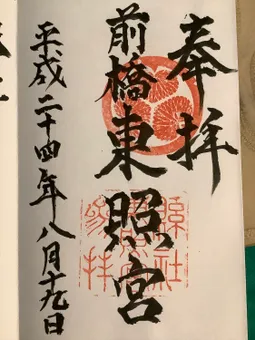 奉拝
前橋東照宮
平成二十四年八月十九日
縣社
参拝